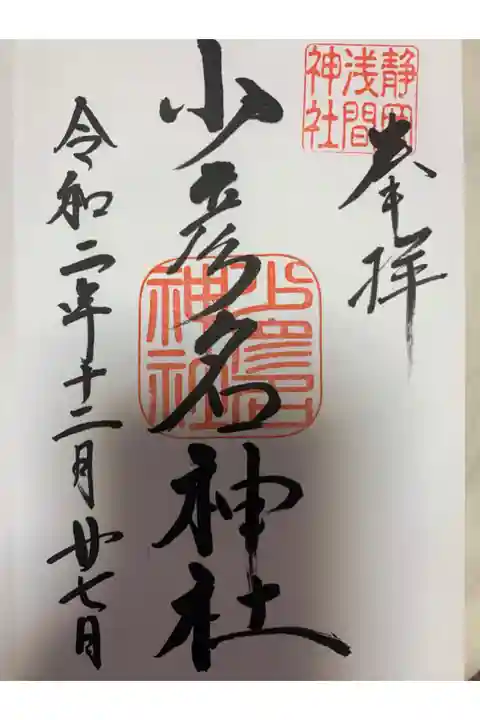 奉拝
静岡
浅間
神社
少彦名神社
少彦名
神社
令和二年十二月廿七日